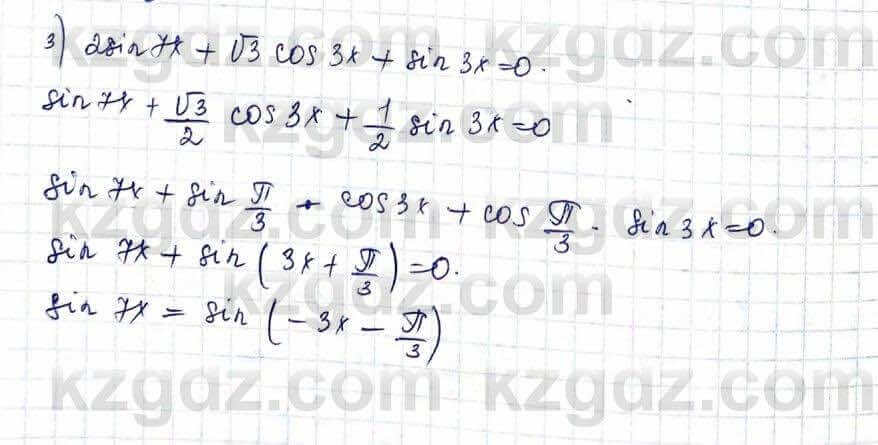 3) 2sin 7x + √3 cos 3x + sin 3x = 0.
sin 7x + √3/2 cos 3x + 1/2 sin 3x = 0
sin 7x + sin π/3 · cos 3x + cos π/3 · sin 3x = 0.
sin 7x + sin (3x + π/3) = 0.
sin 7x = sin (-3x - π/3)
kzgdz.com
kzgdz.com
kzgdz.com
kzgdz.com
kzgdz.com
kzgdz.com
kzgdz.com
kzgdz.com